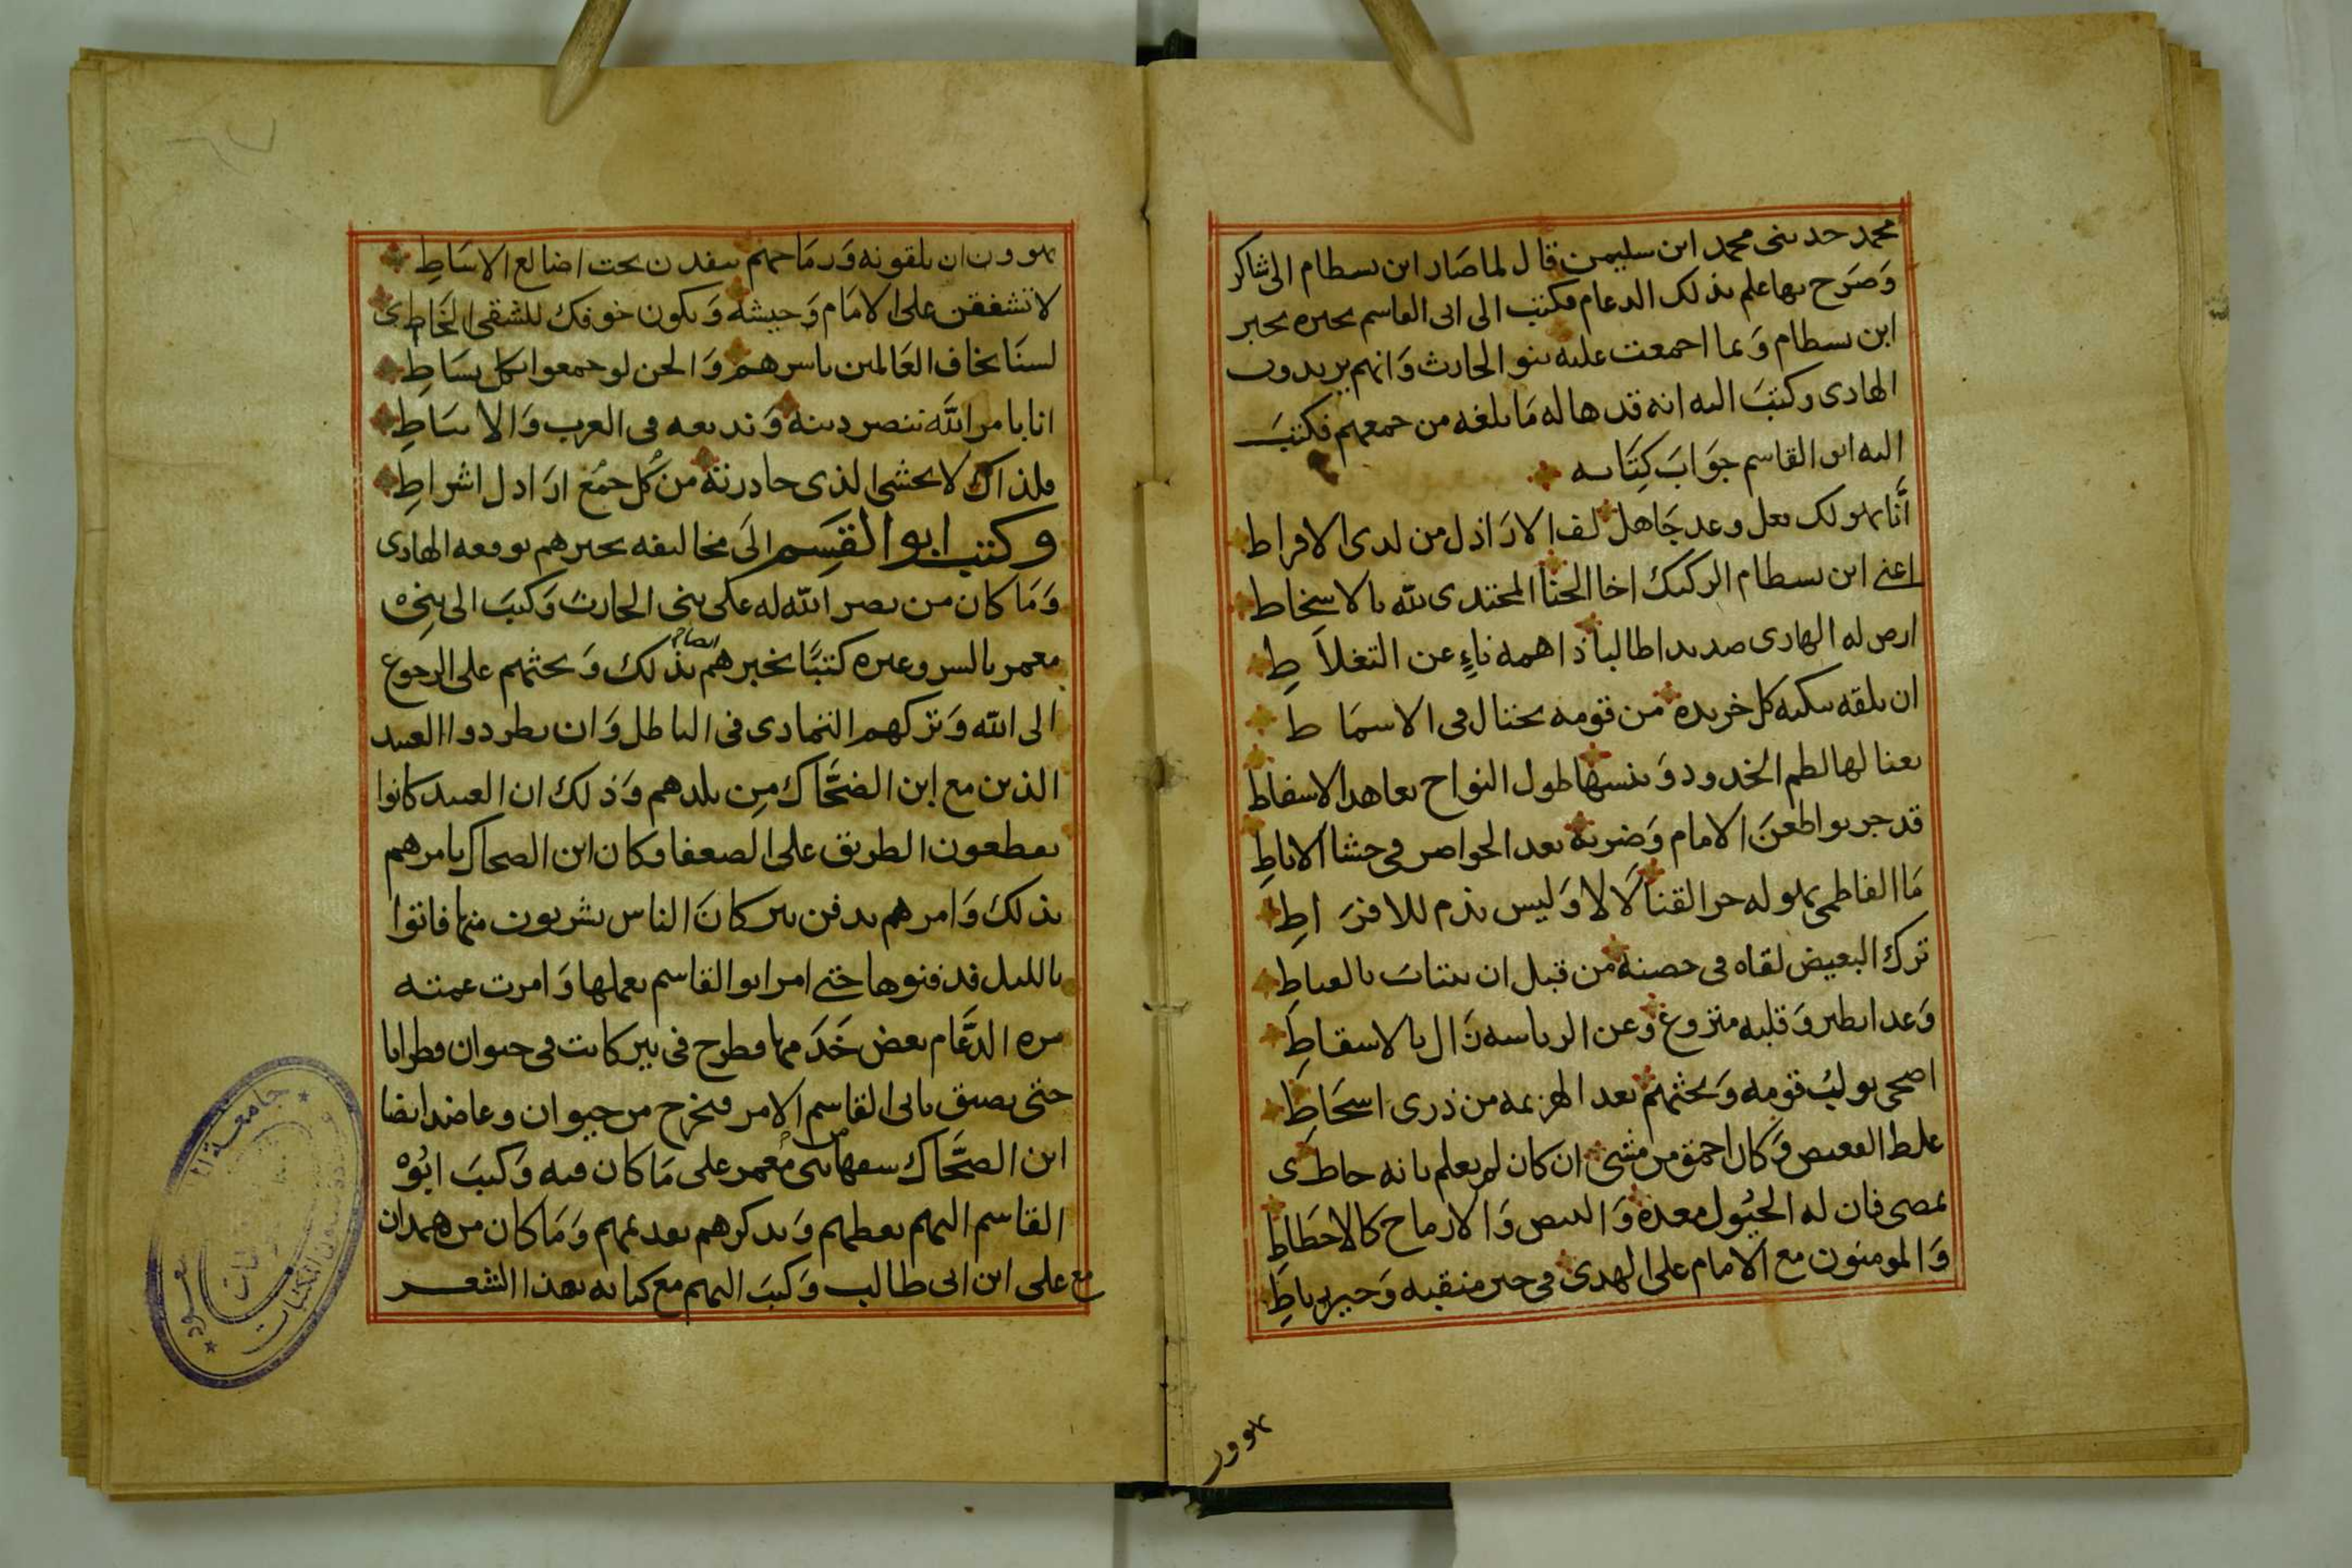 محمد حدثنى محمد ابن سليمن قال لما صار ابن بسطام الى شاكر
وصرح بها علم بذلك الدعام فكتب الى ابى القاسم يخبره بخبر
ابن بسطام وبما اجمعت عليه بنو الحارث وانهم يريدون
الهادى وكتب اليه انه قد هاله ما بلغه من جمعهم فكتب
اليه ابو القاسم جواب كتابه
انا يهولك وعد جاهل لف الاراذل من لدى الافراط
اعنى ابن بسطام الركيك اخا الخنا المحتدى لله بالاسخاط
ارص له الهادى طالبا ذا همه ناء عن التغلاط
ان يلقه تبكيه كل خريده من قومه تختال فى الاسماط
يعنا لها لطم الخدود وينسها طول النواح تعاهد الاسفاط
قد جربوا طعن الامام وضربه بعد الخواصر فى حشا الاباط
ما الفاطمى يهوله حر القنا لا لا وليس بذم للافراط
ترك البعيض لقاه فى حصنه من قبل ان ينتاب بالعباط
وغدا يطير وقلبه متزوغ وعن الرياسه زال بالاسقاط
اضحى يولب قومه ويحثهم بعد الهزيمه من ذرى اسحاط
غلط وكان احمق من مشى ان كان لم يعلم بانه خاطى
يمضى فان له الخيول معدة والبيض والارماح كالاخطاط
والمومنون مع الامام على الهدى فى خير منقبه وخير رباط
يهوون
يهوون ان يلقونه ورماحهم ينفدن تحت اضالع الاساط
لا تشفقن على الامام وجيشه ويكون خوفك للشقى الخاطى
لسنا نخاف العالمين باسرهم والجن لو جمعوا بكل بساط
انا بامر الله ننصر دينه ونديعه فى العرب والانباط
فلذاك لا نخشى الذى حاذرته من كل جمع اراذل اشراط
وكتب ابو القسم الى مخاليفه يخبرهم بوقعه الهادى
وما كان من نصر الله له على بنى الحارث وكتب الى بنى
معمر بالسر وغيره كتبا يخبرهم ايضا بذلك ويحثهم على الرجوع
الى الله وتركهم التمادى فى الباطل وان يطردوا العبيد
الذين مع ابن الضحاك من بلدهم وذلك ان العبيد كانوا
يقطعون الطريق على الضعفا وكان ابن الضحاك يامرهم
بذلك وامرهم بدفن بير كان الناس يشربون منها فاتوا
بالليل فدفنوها حتى امر ابو القاسم بعملها وامرت عمته
مره الدعام بعض خدمها فطرح فى بير كانت فى حيوان قطرانا
حتى يضيق بابى القاسم الامر فيخرج من حيوان وعاضد ايضا
ابن الضحاك سفها بنى معمر على ما كان فيه وكتب ابو
القاسم اليهم يعظهم ويذكرهم بعد عمهم وما كان من همدان
مع على ابن ابى طالب وكتب اليهم مع كتابه بهذا الشعر
جامعة
شؤون المكتبات